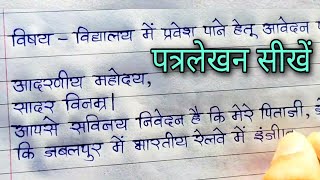 विषय - विद्यालय में प्रवेश पाने हेतु आवेदन
पत्रलेखन सीखें
आदरणीय महोदय,
सादर विनम्र।
आपसे सविनय निवेदन है कि मेरे पिताजी,
कि जबलपुर में भारतीय रेलवे में